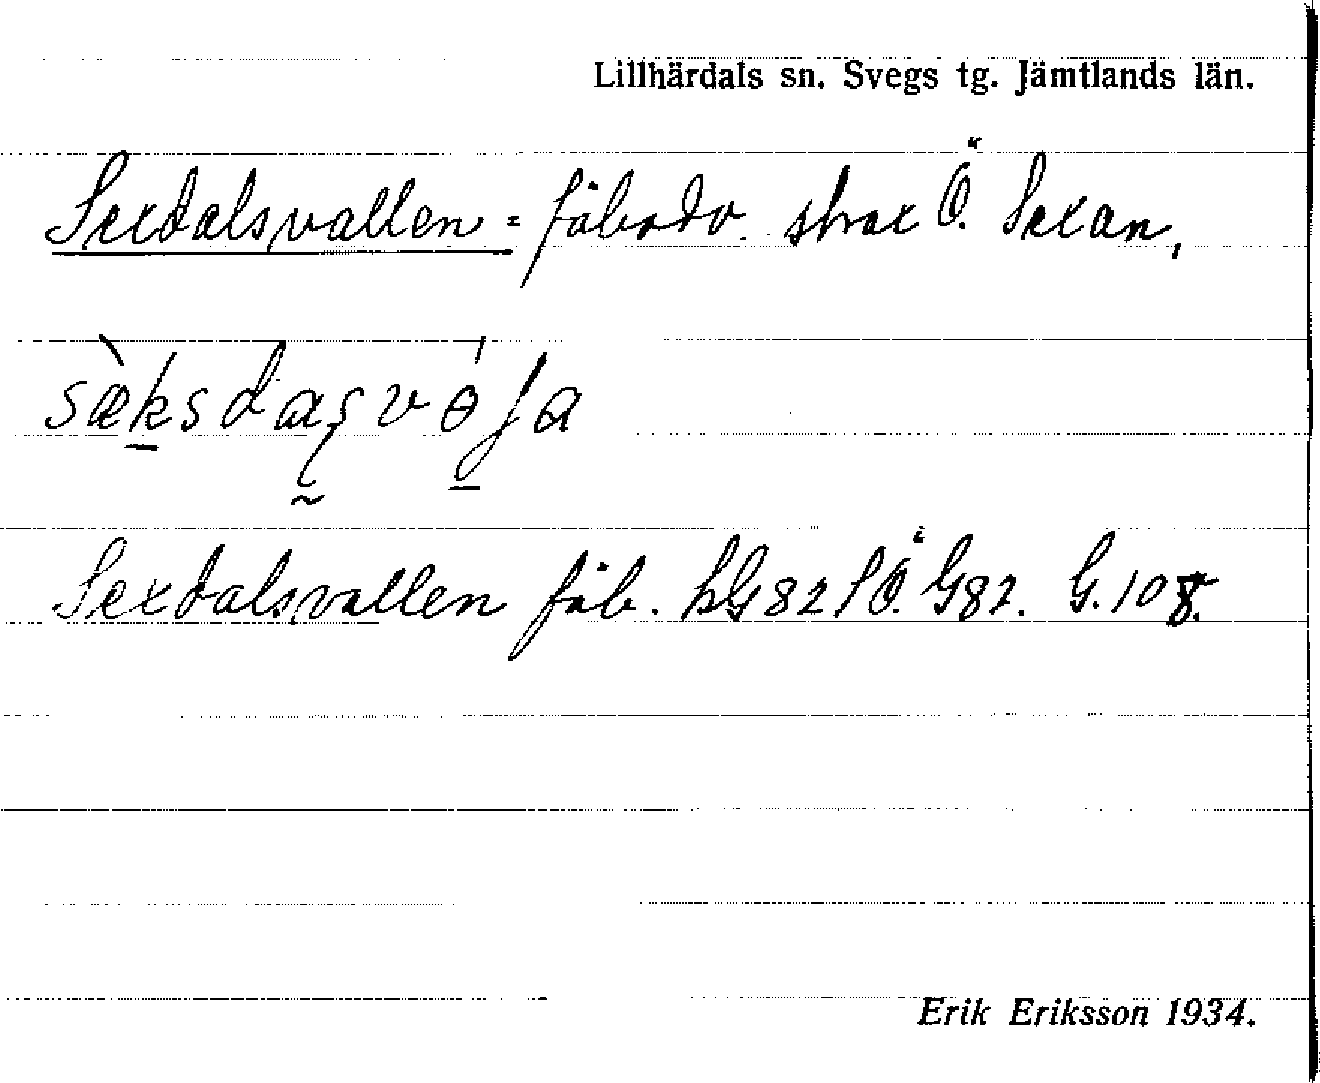 Lillhärdals sn. Svegs tg. Jämtlands län.
Sexdalsvallen = fäbodv. strax Ö. Sexan,
sæ̀ksdaʂvɵ́ʃa
Sexdalsvallen fäb. hG82 SÖ. G82. G. 108.
Erik Eriksson 1934.